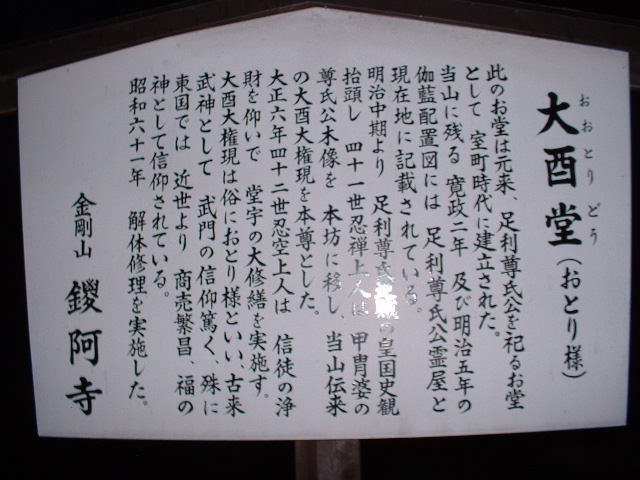 大酉堂(おとり様)
おおとりどう
此のお堂は元来、足利尊氏公を祀るお堂
として 室町時代に建立された。
当山に残る 寛政二年 及び明治五年の
伽藍配置図には 足利尊氏公霊屋と
現在地に記載されている。
明治中期より 足利尊氏 の皇国史観
抬頭し 四十一世忍禅上人は 甲冑姿の
尊氏公木像を 本坊に移し、当山伝来
の大酉大権現を本尊とした。
大正六年四十二世忍空上人は 信徒の浄
財を仰いで 堂宇の大修繕を実施す。
大酉大権現は俗におとり様といい、古来
武神として 武門の信仰篤く、殊に
東国では 近世より 商売繁昌、福の
神として信仰されている。
昭和六十一年 解体修理を実施した。
金剛山 鑁阿寺